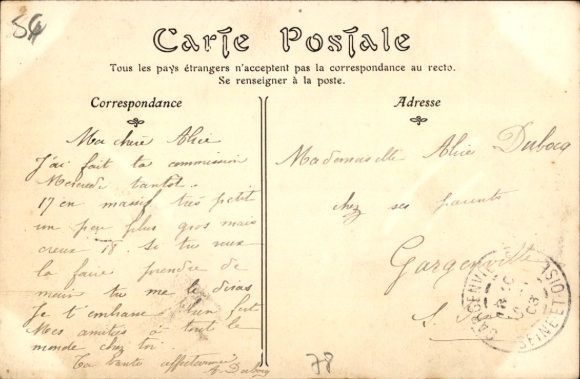 54
Carte Postale
Tous les pays étrangers n'acceptent pas la correspondance au recto.
Se renseigner à la poste.
Correspondance
Ma chère Alice
J'ai fait ta commission
Mercredi tantôt.
17 en massif très petit
un peu plus gros mais
creux 18 Si tu veux
la faire prendre de
main tu me le diras
Je t'embrasse bien fort
Mes amitiés à tout le
monde chez toi
Ta tante affectionnée
A. Dubocq
Adresse
Mademoiselle Alice Dubocq
chez ses parents
Gargenville
S.
GARGENVILLE
SEINE-ET-OISE
78